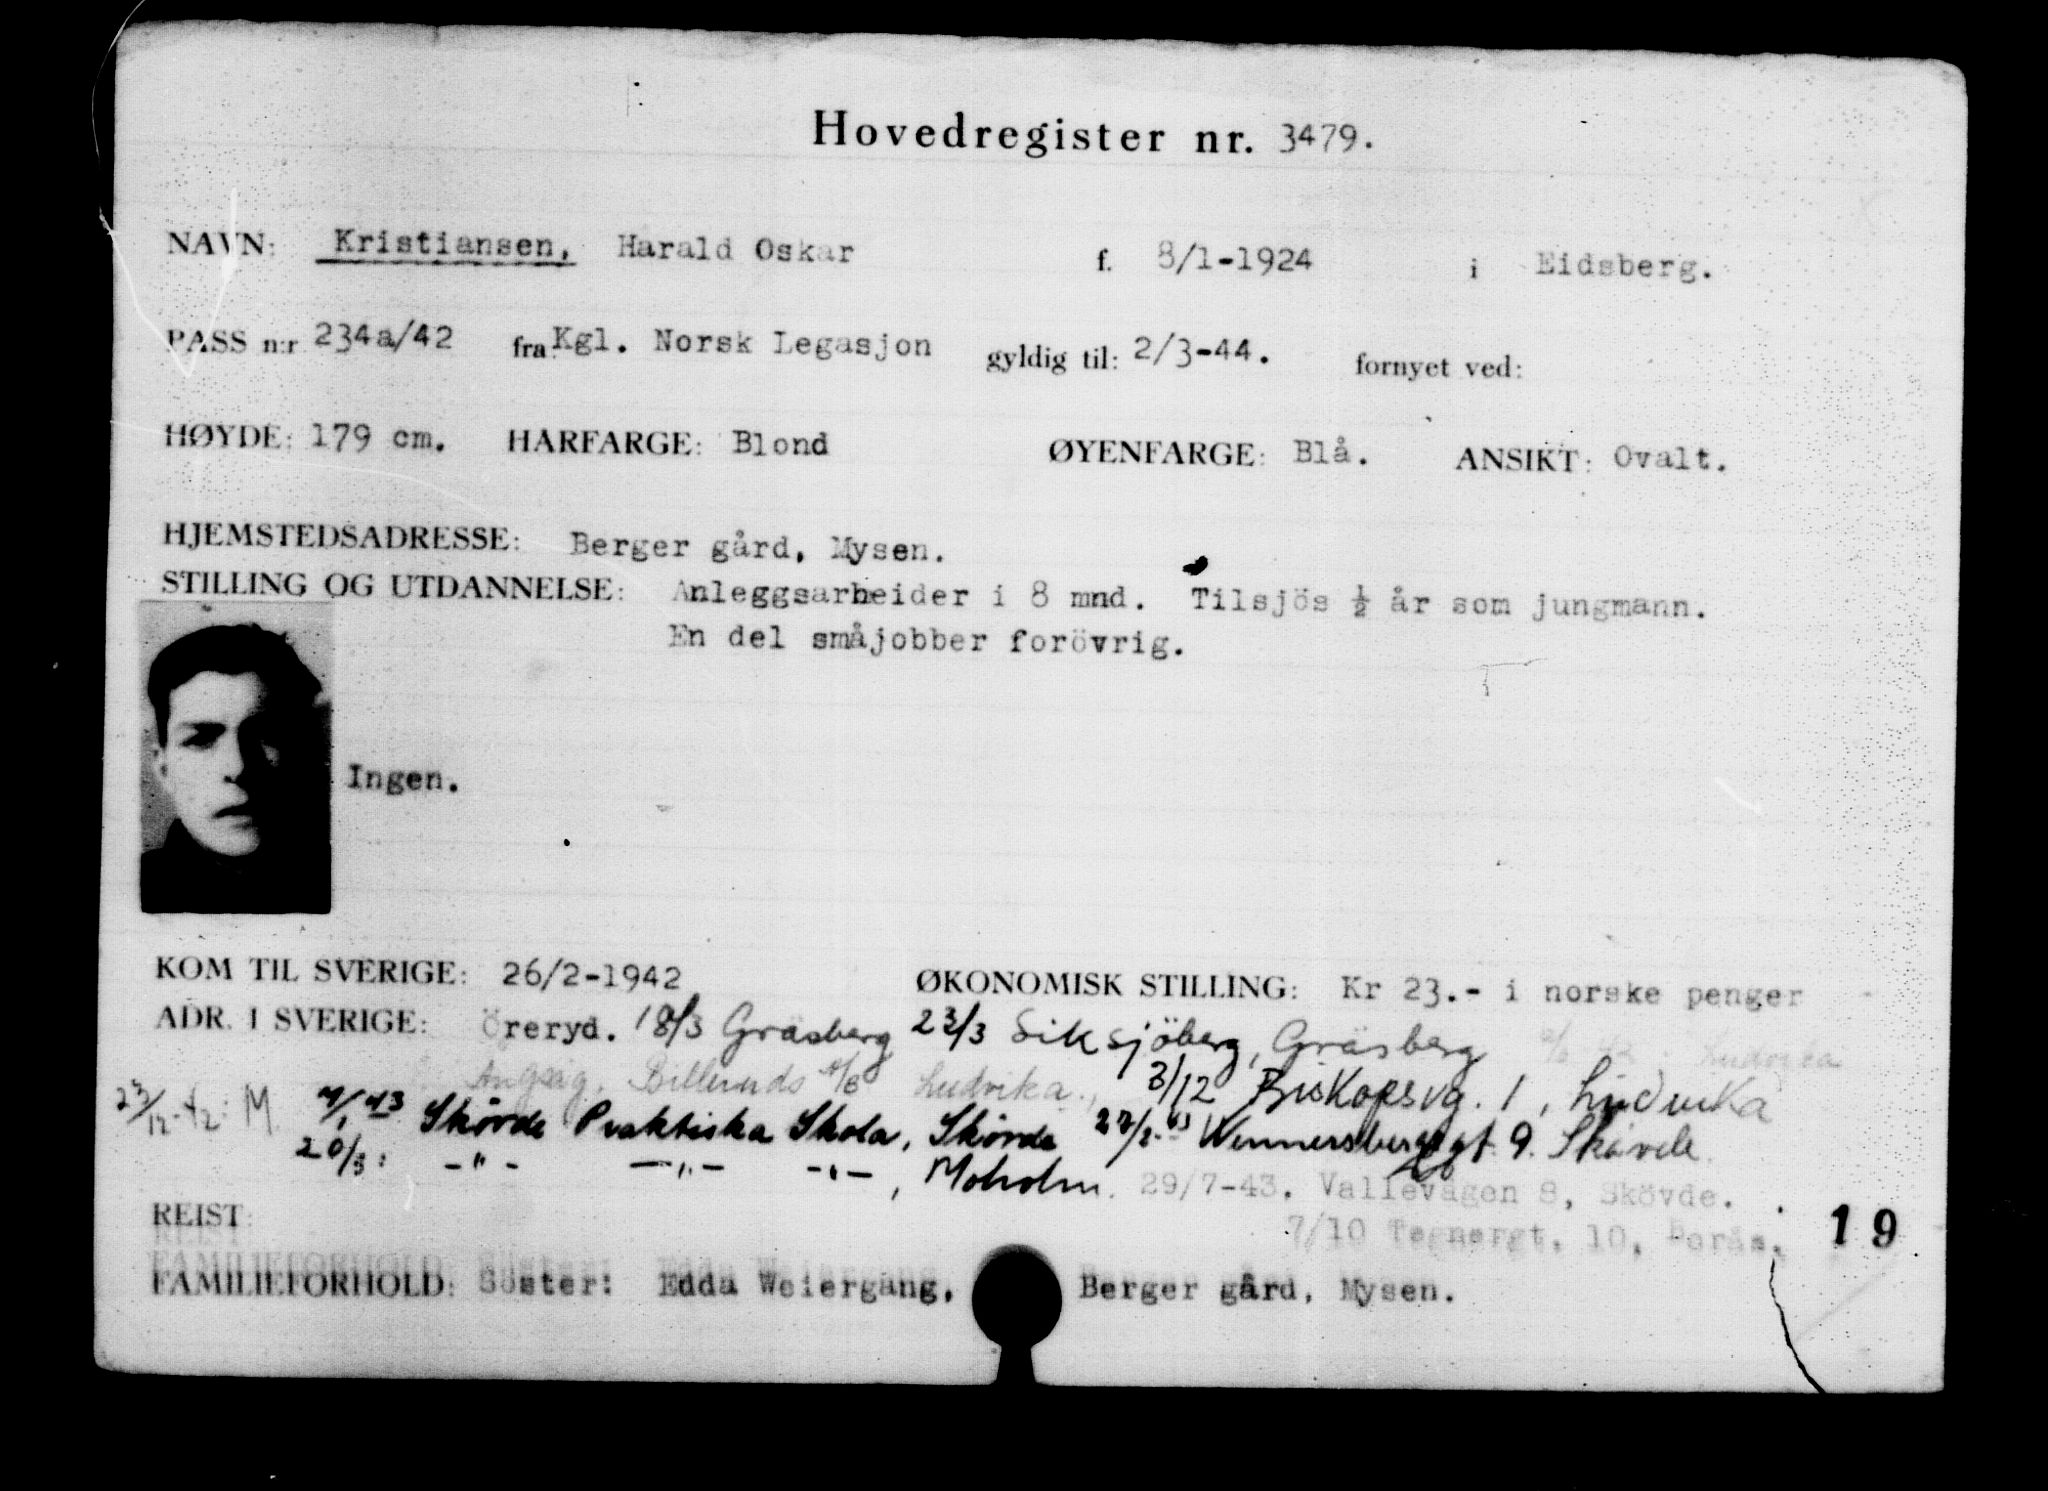 Hovedregister nr. 3479.
NAVN: Kristiansen, Harald Oskar f. 8/1-1924 i Eidsberg.
PASS n:r 234a/42 fra Kgl. Norsk Legasjon gyldig til: 2/3-44. fornyet ved:
HØYDE: 179 cm. HÅRFARGE: Blond ØYENFARGE: Blå. ANSIKT: Ovalt.
HJEMSTEDSADRESSE: Berger gård, Mysen.
STILLING OG UTDANNELSE: Anleggsarbeider i 8 mnd. Tilsjös ½ år som jungmann.
En del småjobber forövrig.
Ingen.
KOM TIL SVERIGE: 26/2-1942 ØKONOMISK STILLING: Kr 23.- i norske penger
ADR. I SVERIGE: Öreryd. 18/3 Gräsberg 23/3 Siksjöberg, Gräsberg Ludvika
Billeruds Ludvika. 3/12 Biskopsvg. 1, Ludvika
M 4/1 43 Skövde Praktiska Skola, Skövde 27/2-43 Wennersberggt. 9. Skövde
20/3: -"- -"- -"-, Moholm. 29/7-43. Vallevägen 8, Skövde.
REIST: 7/10 Tegnergt. 10, Borås. 19
FAMILIEFORHOLD: Söster: Edda Weiergang, Berger gård, Mysen.